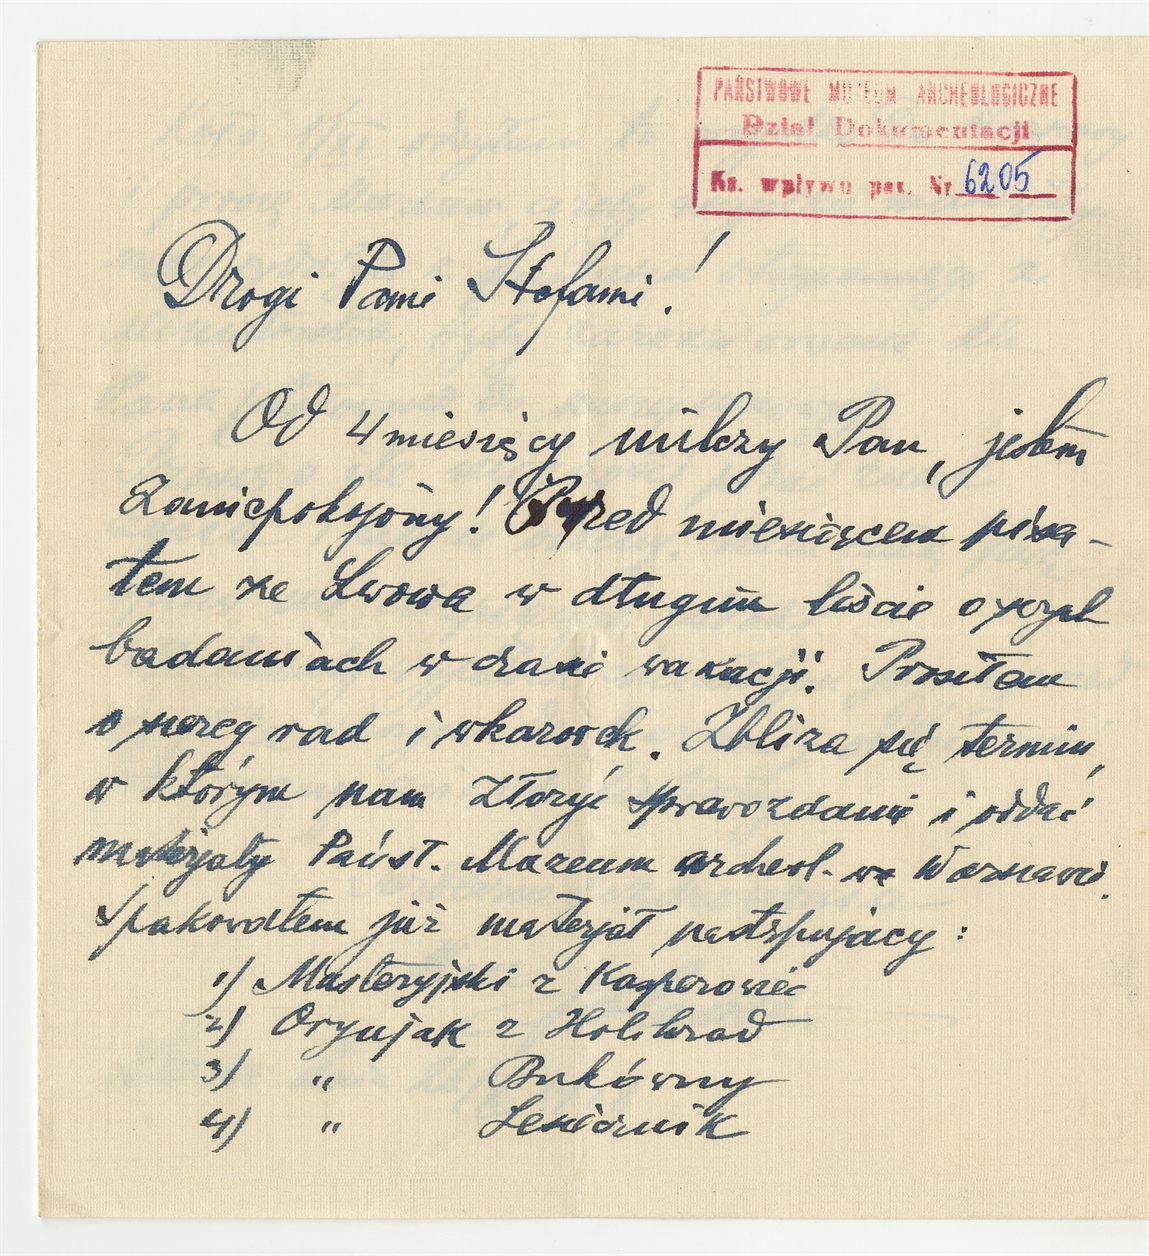 PAŃSTWOWE MUZEUM ARCHEOLOGICZNE
Dział Dokumentacji
Ks. wpływu pas. Nr 6205
Drogi Pani Stefani!
Od 4 miesięcy milczy Pan, jestem
zaniepokojony! Przed miesiącem pisa-
łem ze Lwowa w długim liście o
badaniach w czasie wakacji. Prosiłem
o szereg rad i wkazowek. Zbliża się termin,
w którym mam złożyć sprawozdanie i oddać
materjały Państ. Muzeum archeol. we Warszawie.
Spakowałem już materjał następujący:
1) Musteryjski z Kasperowiec
2) Oryniak z Holihrad
3) " Bukówny
4) " Lesiecznik